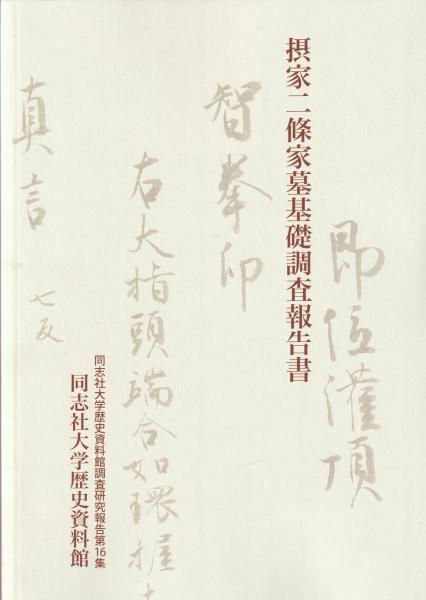 摂家二條家墓基礎調査報告書
即位灌頂
智拳印
右大指頭端合如環握
真言
七反
同志社大学歴史資料館調査研究報告第16集
同志社大学歴史資料館